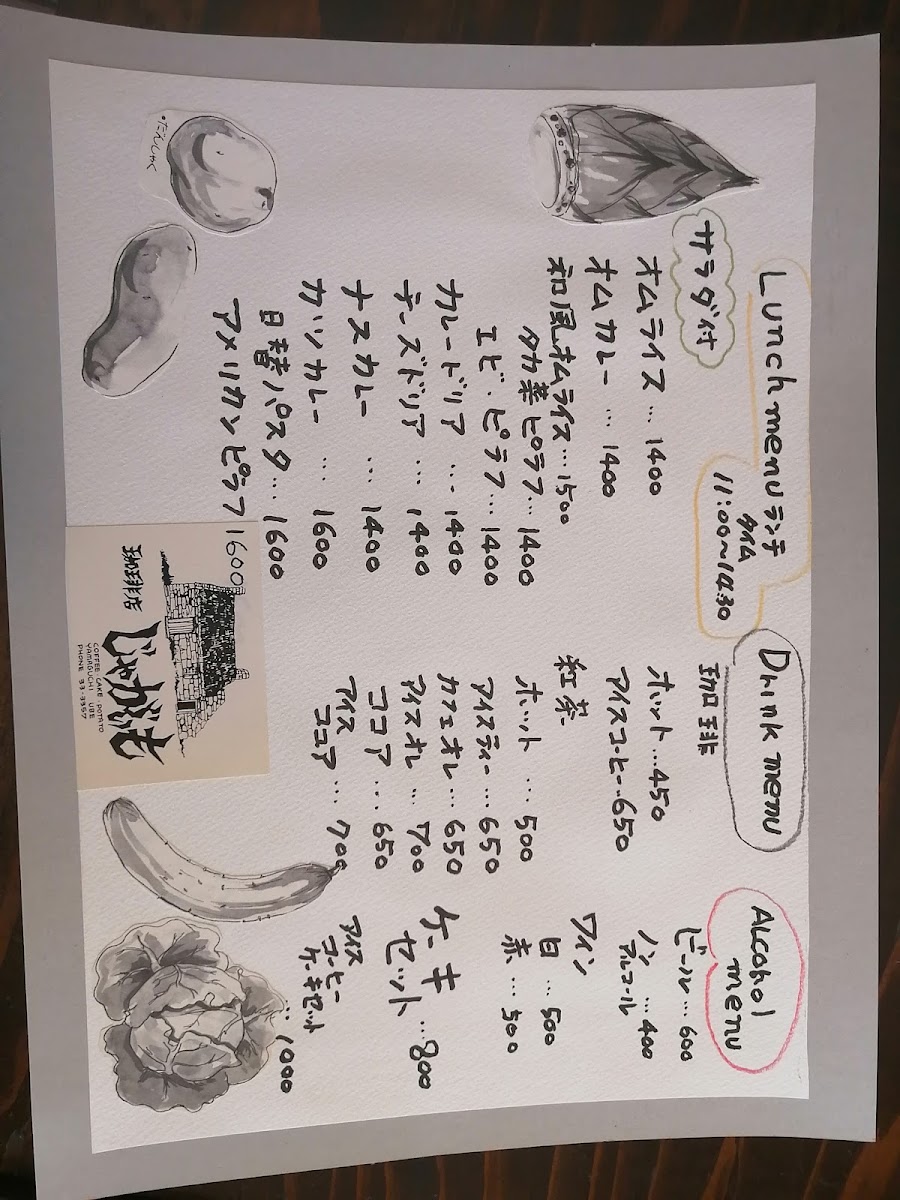 Lunch menu ランチ
タイム
11:00〜14:30
サラダ付
オムライス… 1400
オムカレー … 1400
和風オムライス…1500
タカ菜ピラフ…1400
エビ・ピラフ…1400
カレードリア … 1400
チーズドリア … 1400
ナスカレー … 1400
カツカレー … 1600
日替パスタ… 1600
アメリカンピラフ1600
Drink menu
珈琲
ホット…450
アイスコーヒー…650
紅茶
ホット … 500
アイスティー…650
カフェオレ…650
アイスオレ… 700
ココア … 650
アイス
ココア … 700
ALCOHOl
menu
ビール…600
ノン
アルコール …400
ワイン
白 … 500
赤 … 500
ケーキ
セット …800
アイス
コーヒー
ケーキセット
… 1000
だんしゃく
珈琲店
じゃがいも
COFFEE CAKE POTATO
YAMAGUCHI UBE
PHONE 33-3357